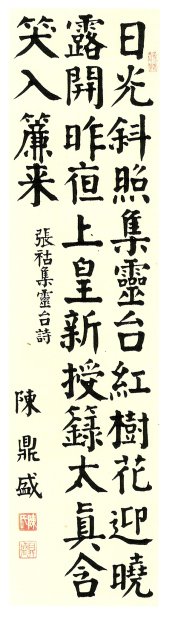 日光斜照集靈台紅樹花迎曉
露開昨夜上皇新授籙太真含
笑入簾来
張祜集靈台詩
陳鼎盛